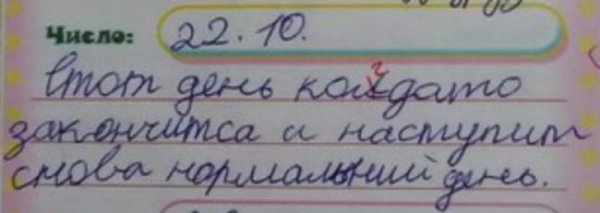 Число: 22.10.
Этот день когдато
закончитса и наступит
снова нормальний день.